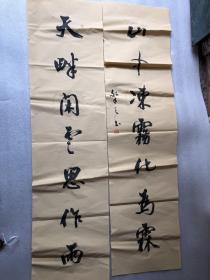 山中凍霧化為霖
天畔閑雲思作雨